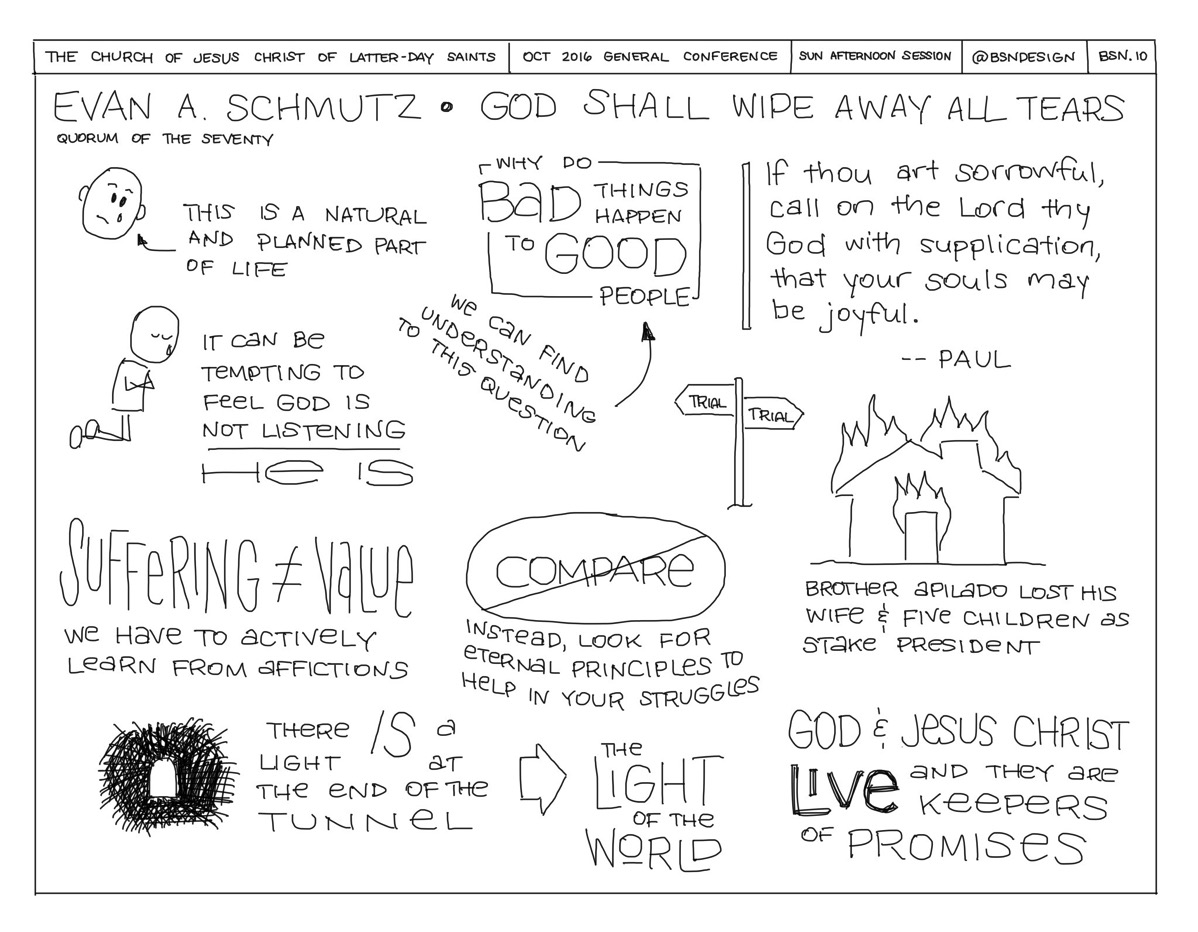 THE CHURCH OF JESUS CHRIST OF LATTER-DAY SAINTS
OCT 2016 GENERAL CONFERENCE
SUN AFTERNOON SESSION
@BSNDESIGN
BSN.10
EVAN A. SCHMUTZ • GOD SHALL WIPE AWAY ALL TEARS
QUORUM OF THE SEVENTY
THIS IS A NATURAL
AND PLANNED PART
OF LIFE
WHY DO
BAD THINGS
HAPPEN
TO GOOD
PEOPLE
WE CAN FIND
UNDERSTANDING
TO THIS QUESTION
If thou art sorrowful,
call on the Lord thy
God with supplication,
that your souls may
be joyful.
-- PAUL
IT CAN BE
TEMPTING TO
FEEL GOD IS
NOT LISTENING
HE IS
TRIAL
TRIAL
SUFFERING ≠ VALUE
WE HAVE TO ACTIVELY
LEARN FROM AFFICTIONS
COMPARE
INSTEAD, LOOK FOR
ETERNAL PRINCIPLES TO
HELP IN YOUR STRUGGLES
BROTHER APILADO LOST HIS
WIFE & FIVE CHILDREN AS
STAKE PRESIDENT
THERE IS A
LIGHT AT
THE END OF THE
TUNNEL
THE
LIGHT
OF THE
WORLD
GOD & JESUS CHRIST
LIVE AND THEY ARE
KEEPERS
OF PROMISES